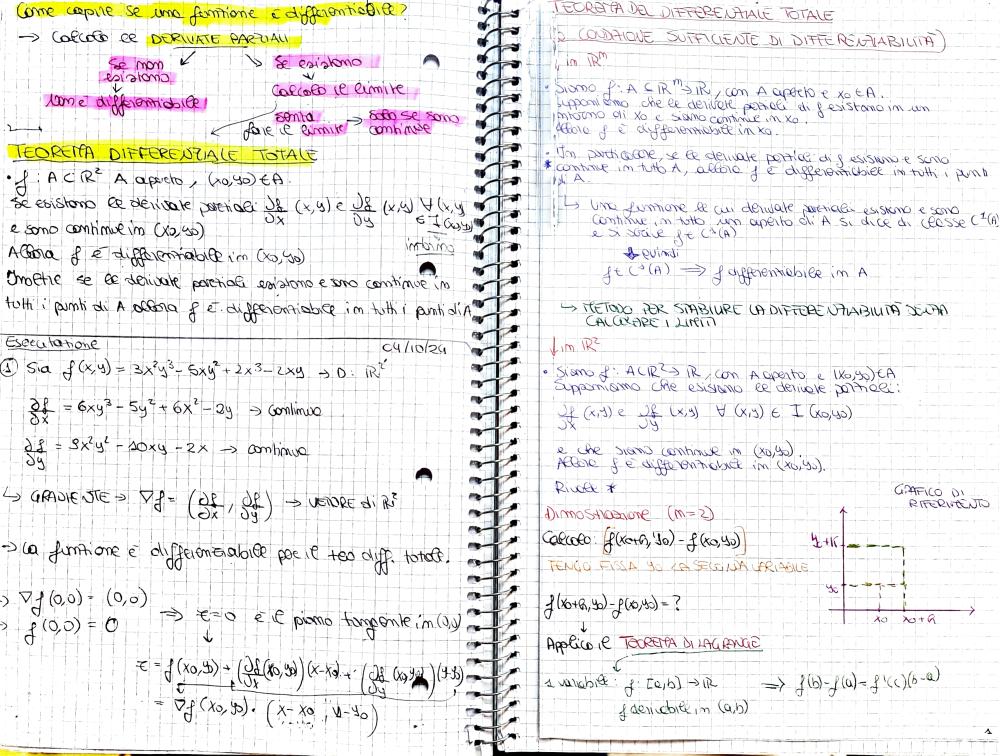 Come capire se una funzione è differenziabile?
→ Calcolo le DERIVATE PARZIALI
Se non esistono
non è differenziabile
Se esistono
Calcolo il limite
senza fare il limite → solo se sono continue
TEOREMA DIFFERENZIALE TOTALE
• f: A⊂ℝ² A aperto, (x0,y0) ∈ A.
Se esistono le derivate parziali ∂f/∂x (x,y) e ∂f/∂y (x,y) ∀ (x,y) ∈ I(x0,y0)
intorno
e sono continue in (x0,y0)
Allora f è differenziabile in (x0,y0)
Inoltre se le derivate parziali esistono e sono continue in
tutti i punti di A allora f è differenziabile in tutti i punti di A
Esercitazione 04/10/24
① Sia f(x,y) = 3x²y³ - 5xy² + 2x³ - 2xy → D: ℝ²
∂f/∂x = 6xy³ - 5y² + 6x² - 2y → continua
∂f/∂y = 9x²y² - 10xy - 2x → continua
↳ GRADIENTE → ∇f = (∂f/∂x, ∂f/∂y) → VETORE di ℝ²
→ La funzione è differenziabile per il teo diff. totale.
→ ∇f(0,0) = (0,0)
→ f(0,0) = 0
⇒ z=0 è il piano tangente in (0,0)
z = f(x0,y0) + (∂f/∂x (x0,y0))(x-x0) + (∂f/∂y (x0,y0))(y-y0)
= ∇f(x0,y0) · (x-x0, y-y0)
TEOREMA DEL DIFFERENZIALE TOTALE
CONDIZIONE SUFFICIENTE DI DIFFERENZIABILITÀ)
↓ in ℝᵐ
• Siano f: A ⊆ ℝᵐ → ℝ, con A aperto e x0 ∈ A.
Supponiamo che le derivate parziali di f esistano in un
intorno di x0 e siano continue in x0.
Allora f è differenziabile in x0.
• In particolare, se le derivate parziali di f esistono e sono
* continue in tutto A, allora f è differenziabile in tutti i punti
di A.
↳ Una funzione le cui derivate parziali esistono e sono
continue in tutto un aperto di A si dice di classe C¹(A)
e si scrive f ∈ C¹(A)
↓ quindi
f ∈ C¹(A) ⇒ f differenziabile in A
↳ METODO PER STABILIRE LA DIFFERENZIABILITÀ SENZA
CALCOLARE I LIMITI
↓ in ℝ²
• Siano f: A⊂ℝ² → ℝ, con A aperto e (x0,y0) ∈ A
Supponiamo che esistano le derivate parziali:
∂f/∂x (x,y) e ∂f/∂y (x,y) ∀ (x,y) ∈ I(x0,y0)
e che siano continue in (x0,y0).
Allora f è differenziabile in (x0,y0).
*
GRAFICO DI
RIFERIMENTO
Dimostrazione (m=2)
Calcolo: [f(x0+h, y0) - f(x0,y0)]
TENGO FISSA y0 LA SECONDA VARIABILE
y0
x0 x0+h
f(x0+h,y0) - f(x0,y0) = ?
Applico il TEOREMA DI LAGRANGE
1 variabile: f: [a,b] → ℝ ⇒ f(b)-f(a) = f'(c)(b-a)
f derivabile in (a,b)
1